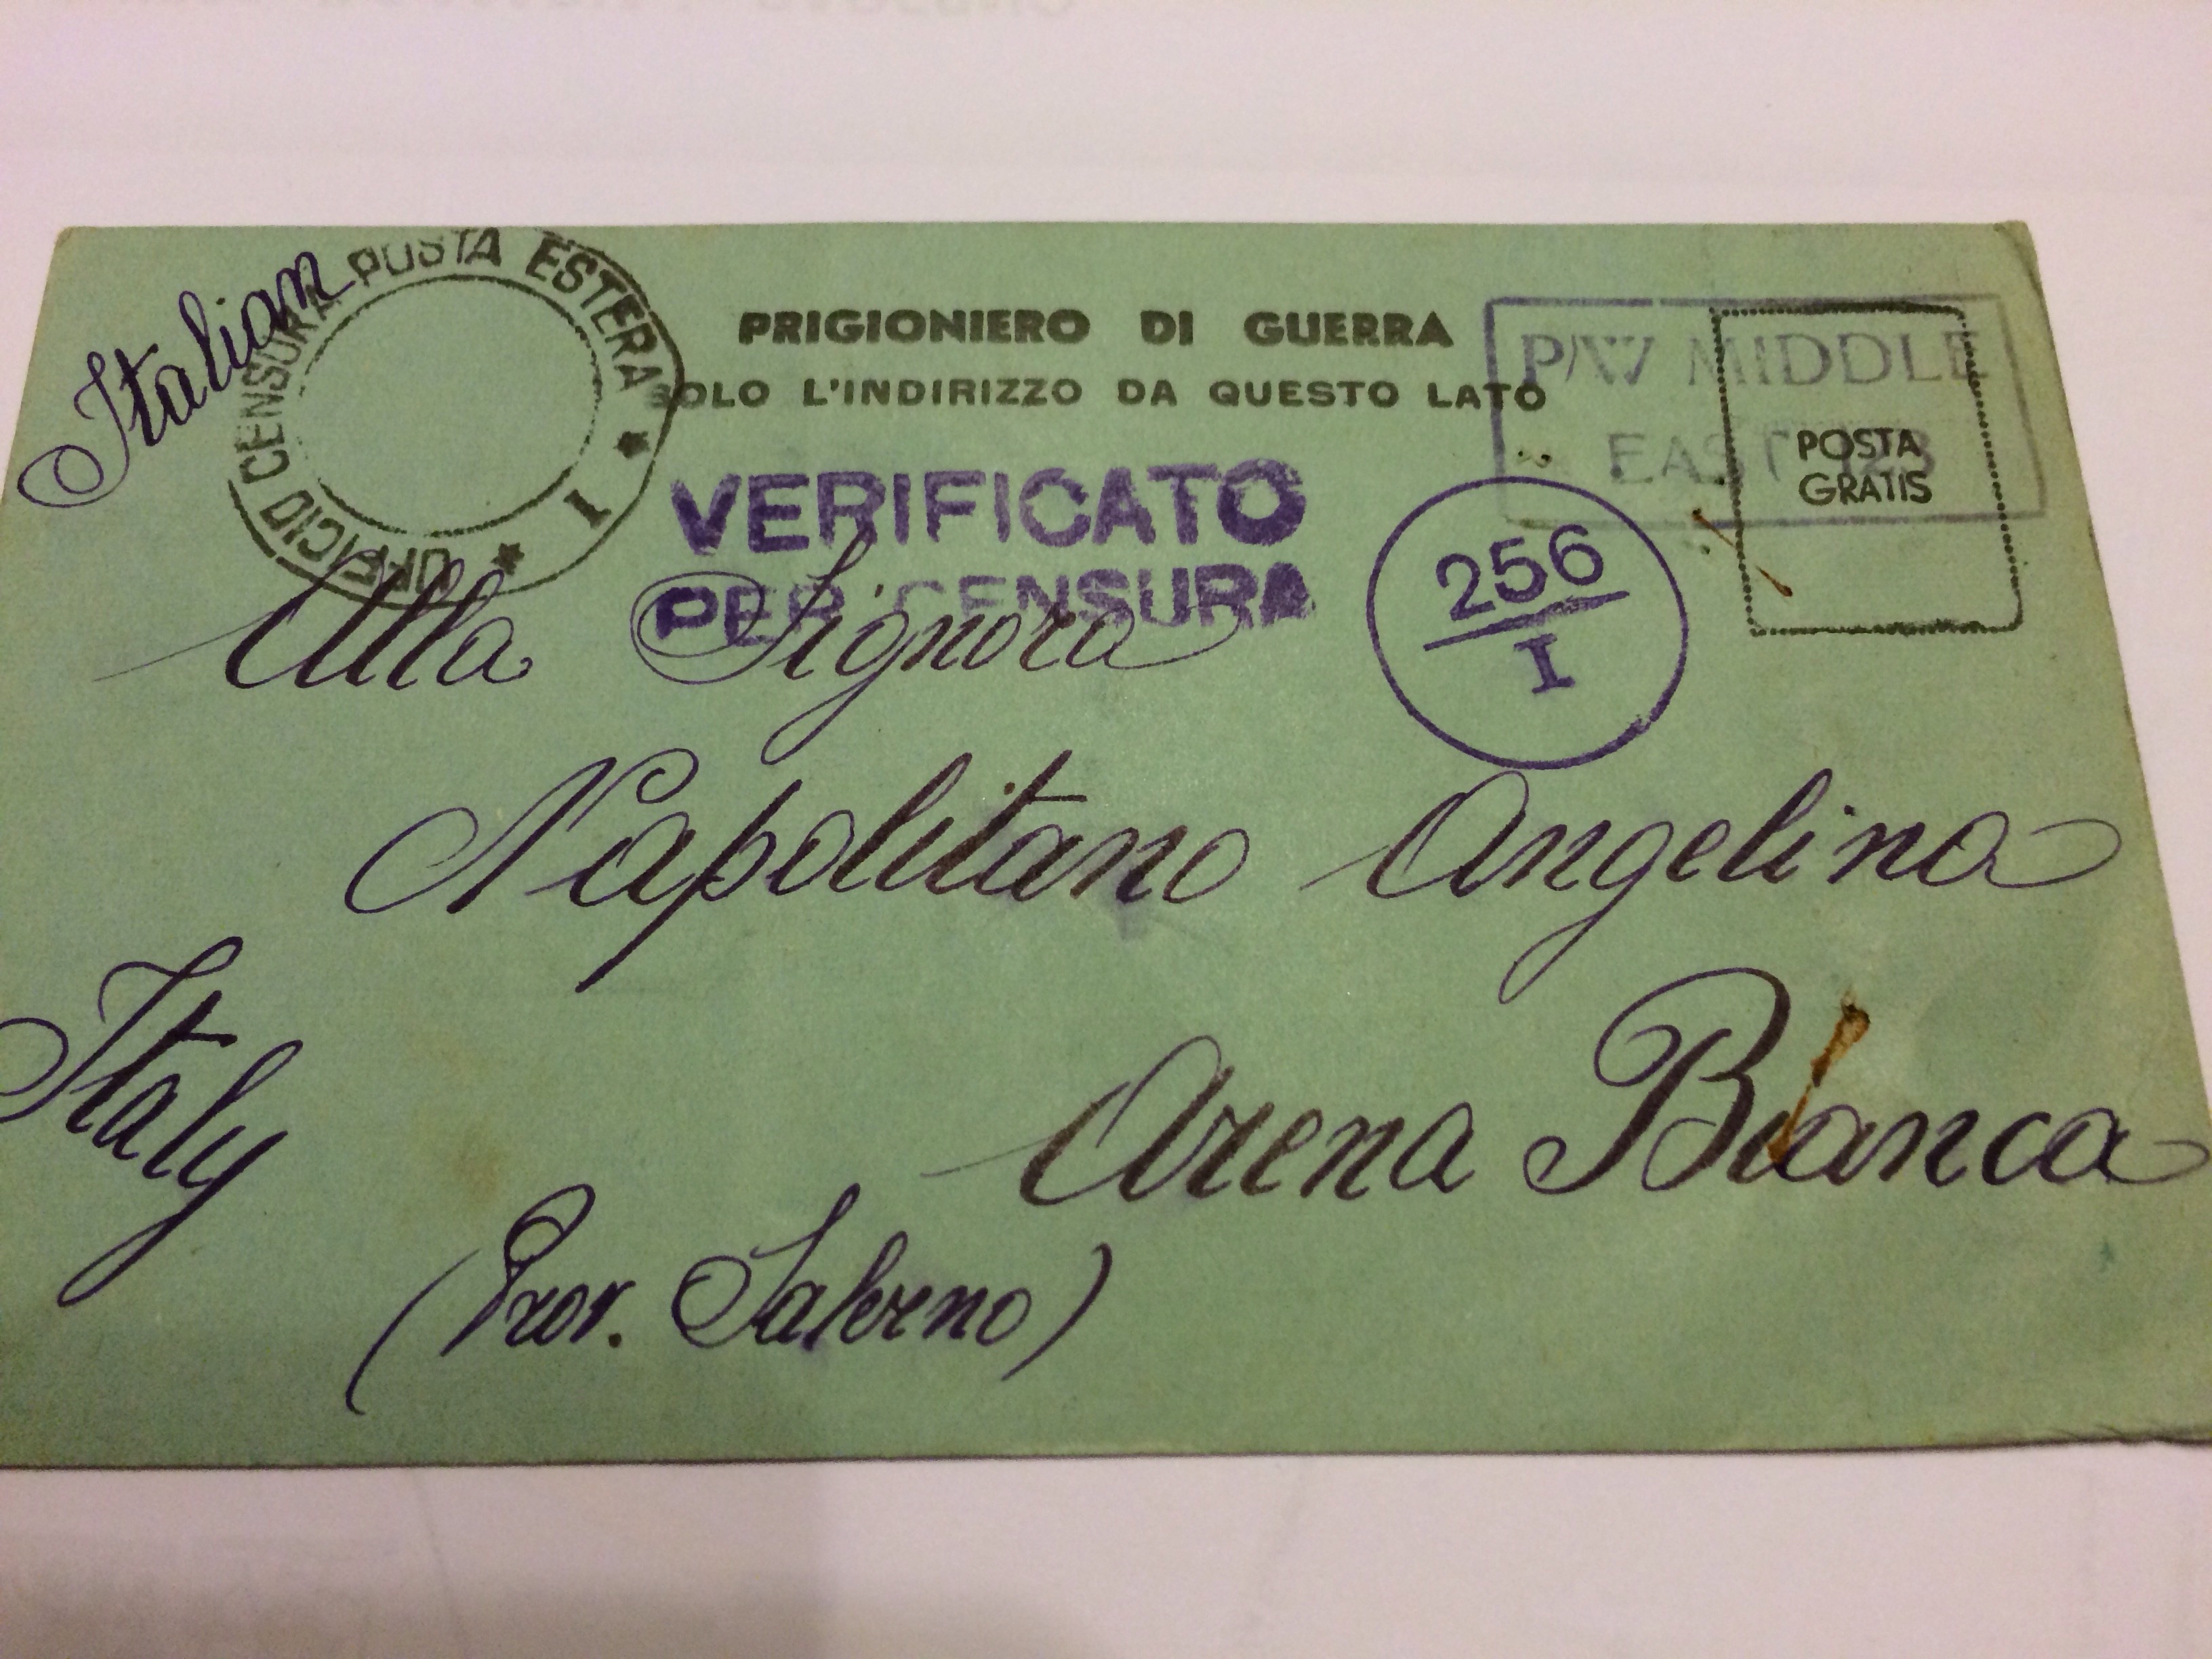 Italian
UFFICIO CENSURA POSTA ESTERA
* I *
PRIGIONIERO DI GUERRA
SOLO L'INDIRIZZO DA QUESTO LATO
P/W MIDDLE
EAST
POSTA
GRATIS
VERIFICATO
PER CENSURA
256
I
Alla Signora
Napolitano Angelina
Arena Bianca
(Prov. Salerno)
Italy